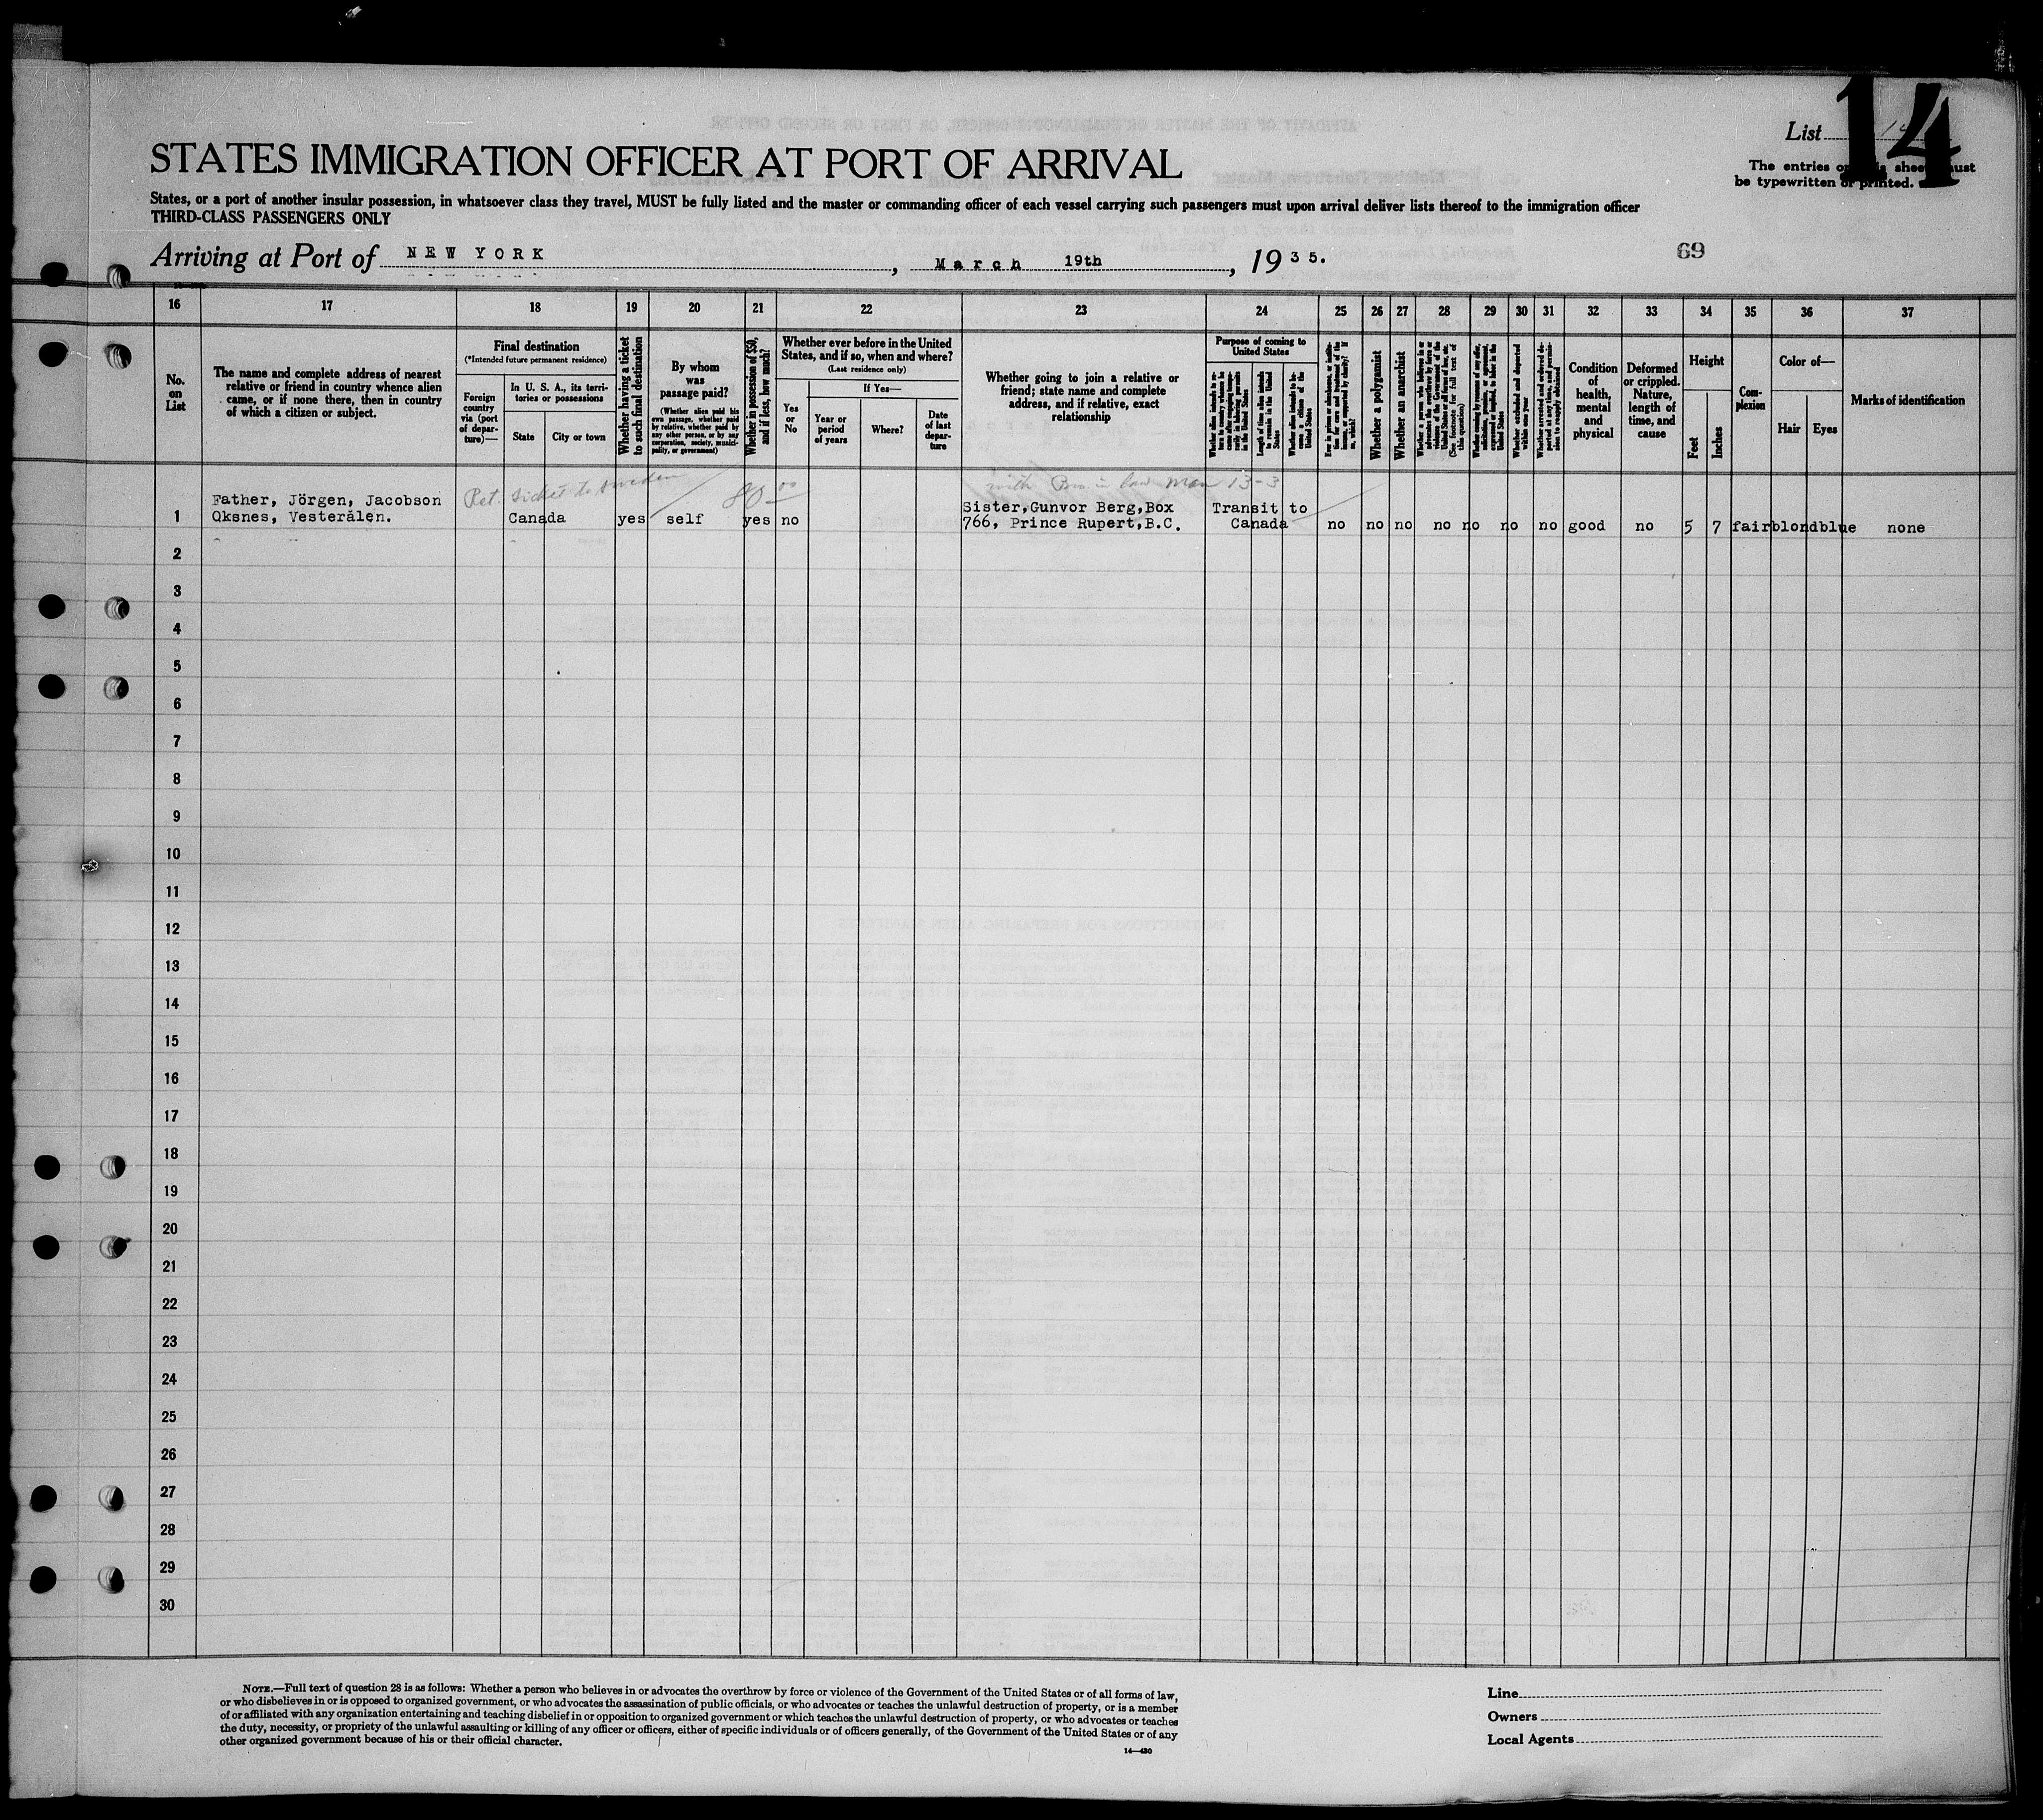 14
List
The entries on this sheet must
be typewritten or printed.
STATES IMMIGRATION OFFICER AT PORT OF ARRIVAL
States, or a port of another insular possession, in whatsoever class they travel, MUST be fully listed and the master or commanding officer of each vessel carrying such passengers must upon arrival deliver lists thereof to the immigration officer
THIRD-CLASS PASSENGERS ONLY
69
Arriving at Port of NEW YORK, March 19th, 1935.
16 17 18 19 20 21 22 23 24 25 26 27 28 29 30 31 32 33 34 35 36 37
No.
on
List
The name and complete address of nearest
relative or friend in country whence alien
came, or if none there, then in country
of which a citizen or subject.
Final destination
(*Intended future permanent residence)
Foreign
country
via (port
of depar-
ture)—
In U. S. A., its terri-
tories or possessions
State
City or town
Whether having a ticket
to such final destination
By whom
was
passage paid?
(Whether alien paid his
own passage, whether paid
by relative, whether paid by
any other person, or by any
corporation, society, munici-
pality, or government)
Whether in possession of $50,
and if less, how much?
Whether ever before in the United
States, and if so, when and where?
(Last residence only)
Yes
or
No
If Yes—
Year or
period
of years
Where?
Date
of last
depar-
ture
Whether going to join a relative or
friend; state name and complete
address, and if relative, exact
relationship
Purpose of coming to
United States
Length of time alien intends
to remain in the United
States
Whether alien intends to be-
come a citizen of the
United States
Whether a polygamist
Whether an anarchist
Condition
of
health,
mental
and
physical
Deformed
or crippled.
Nature,
length of
time, and
cause
Height
Feet
Inches
Com-
plexion
Color of—
Hair
Eyes
Marks of identification
Ret. ticket to Sweden
80.00
with Bro. in law
1
Father, Jörgen, Jacobson
Qksnes, Vesterålen.
Canada yes self yes no
Sister,Gunvor Berg,Box
766, Prince Rupert,B.C.
Transit to
Canada
no no no no no no no good no 5 7 fair blond blue none
2
3
4
5
6
7
8
9
10
11
12
13
14
15
16
17
18
19
20
21
22
23
24
25
26
27
28
29
30
NOTE.—Full text of question 28 is as follows: Whether a person who believes in or advocates the overthrow by force or violence of the Government of the United States or of all forms of law,
or who disbelieves in or is opposed to organized government, or who advocates the assassination of public officials, or who advocates or teaches the unlawful destruction of property, or is a member
of or affiliated with any organization entertaining and teaching disbelief in or opposition to organized government or which teaches the unlawful destruction of property, or who advocates or teaches
the duty, necessity, or propriety of the unlawful assaulting or killing of any officer or officers, either of specific individuals or of officers generally, of the Government of the United States or of any
other organized government because of his or their official character.
14—430
Line
Owners
Local Agents